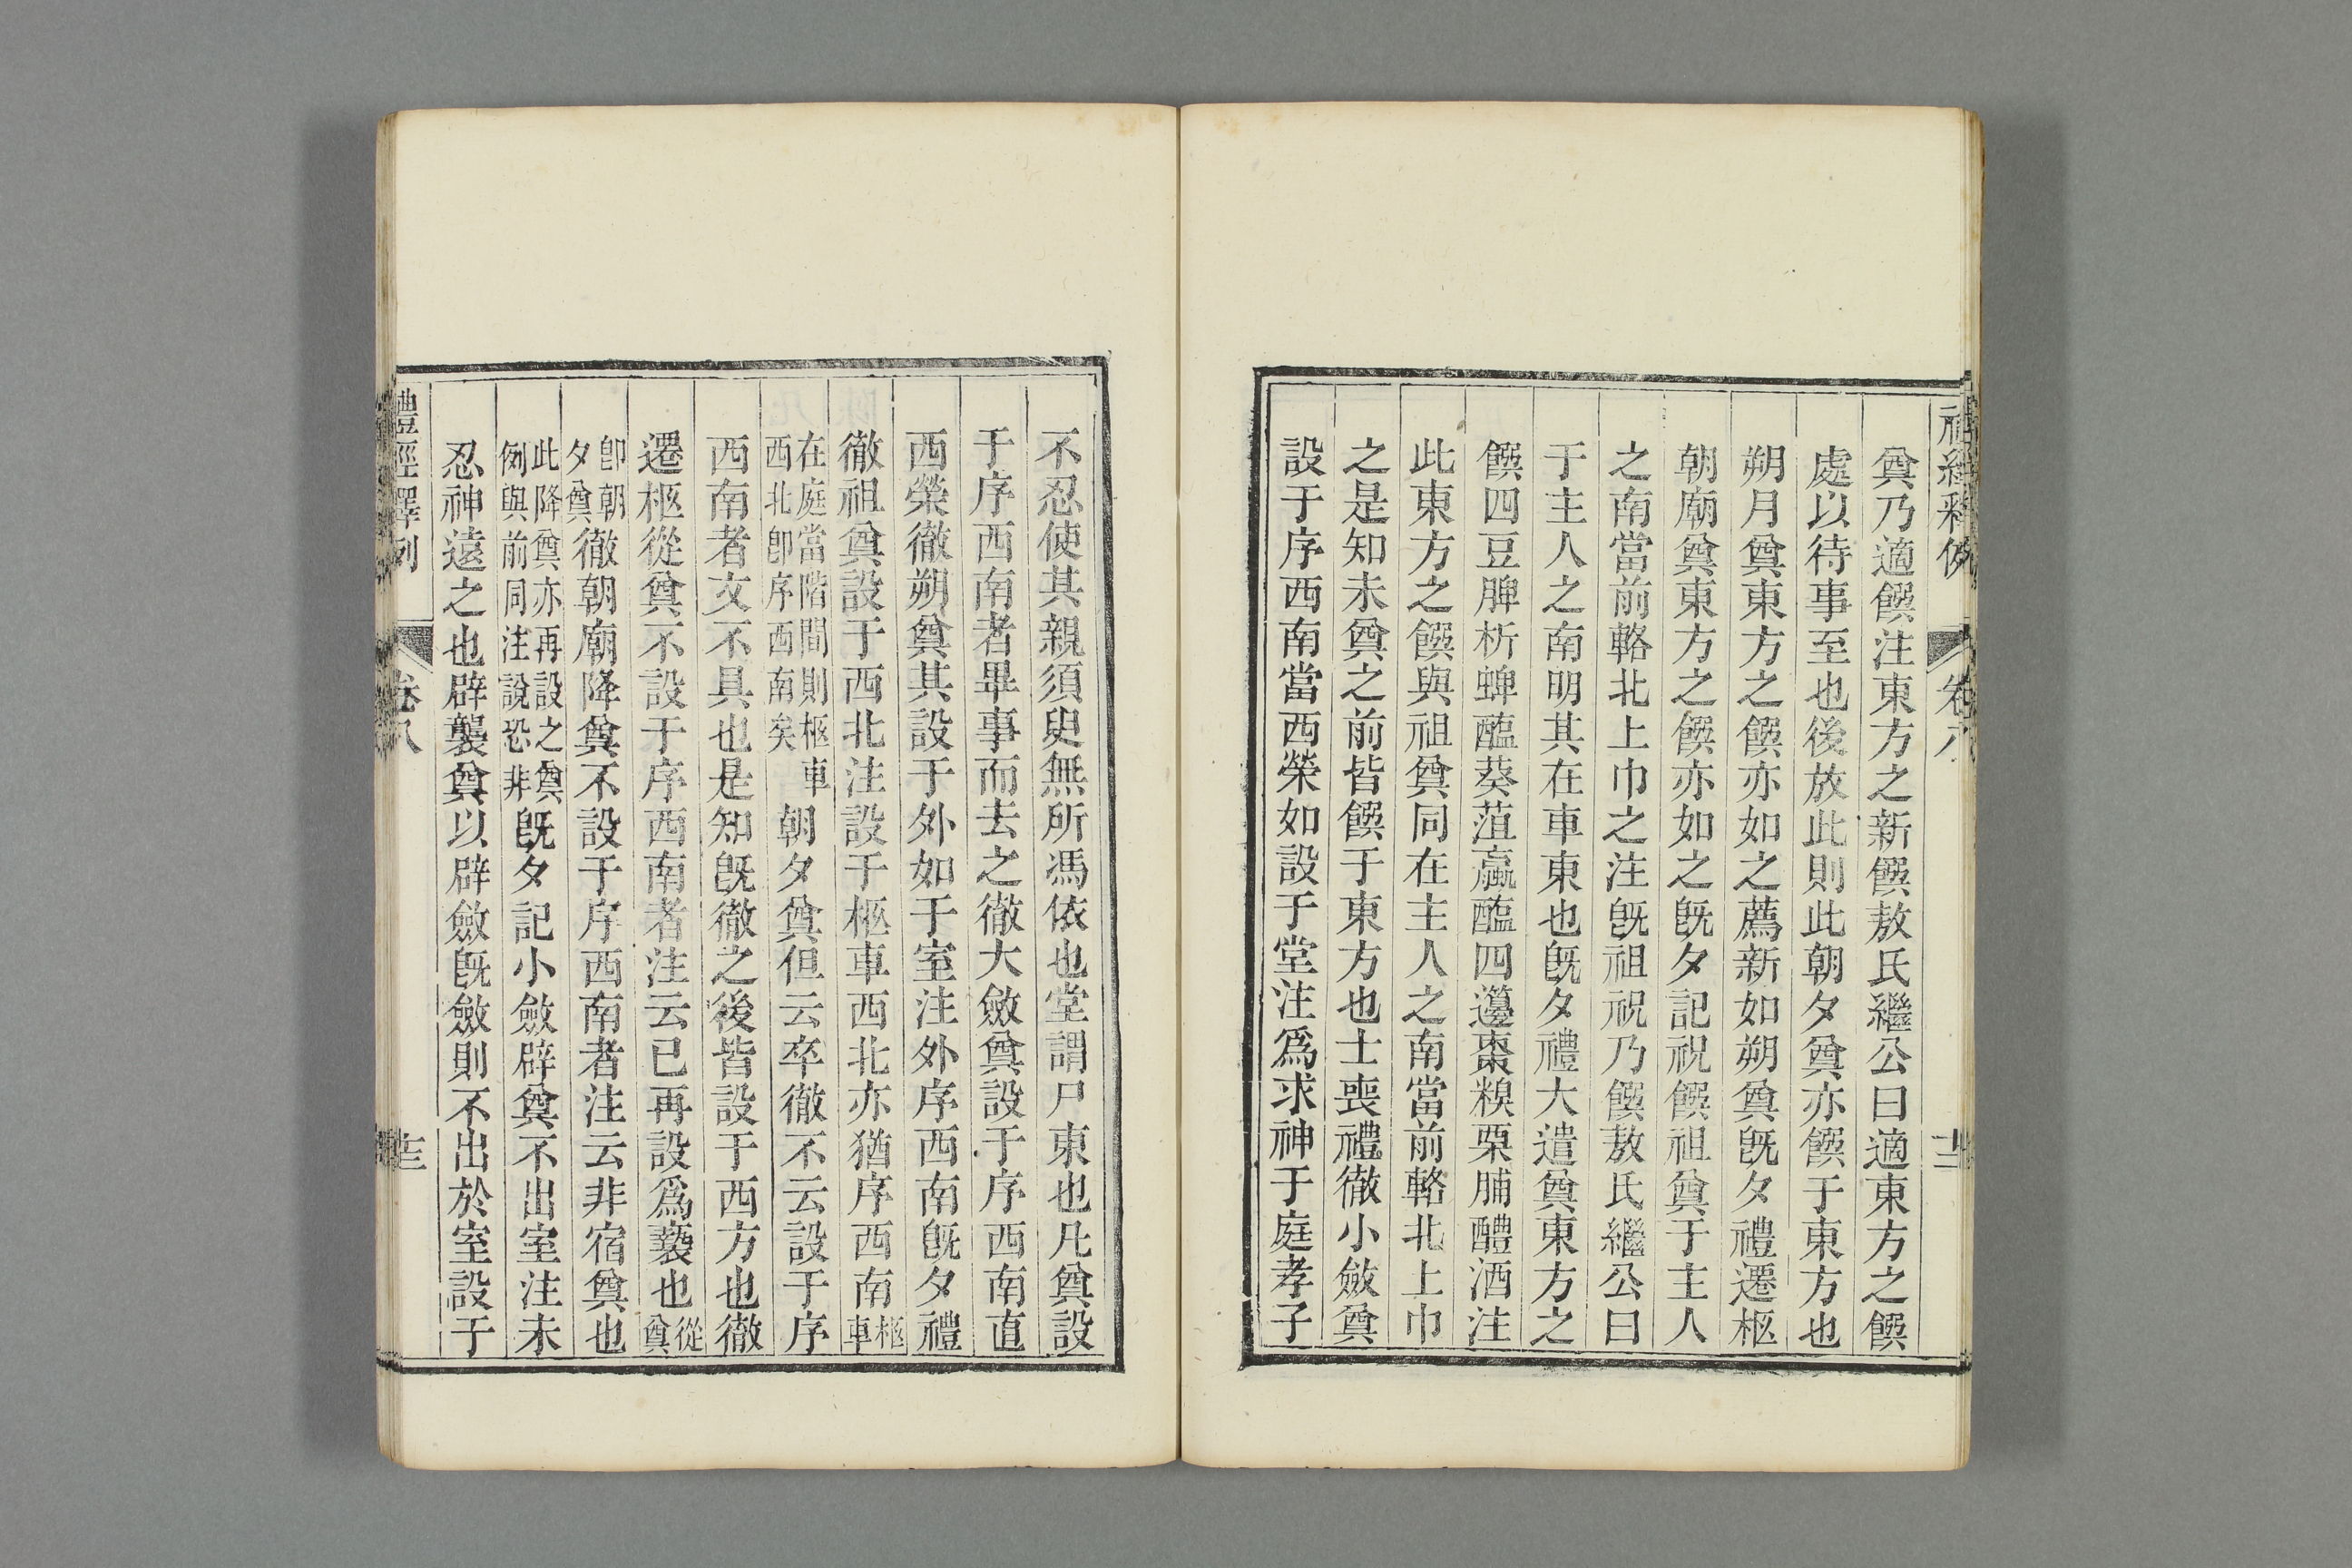 奠乃適饌注東方之新饌敖氏繼公曰適東方之饌
處以待事至也後放此則此朝夕奠亦饌于東方也
朔月奠東方之饌亦如之薦新如朔奠旣夕禮遷柩
朝廟奠東方之饌亦如之旣夕記祝饌祖奠于主人
之南當前輅北上巾之注旣祖祝乃饌敖氏繼公曰
于主人之南明其在車東也旣夕禮大遣奠東方之
饌四豆脾析蜱醢葵菹蠃醢四籩棗糗栗脯醴酒注
此東方之饌與祖奠同在主人之南當前輅北上巾
之是知未奠之前皆饌于東方也士喪禮徹小斂奠
設于序西南當西榮如設于堂注爲求神于庭孝子
不忍使其親須臾無所馮依也堂謂尸東也凡奠設
于序西南者畢事而去之徹大斂奠設于序西南直
西榮徹朔奠其設于外如于室注外序西南旣夕禮
徹祖奠設于西北注設于柩車西北亦猶序西南柩車
在庭當階間則柩車西北卽序西南矣朝夕奠但云卒徹不云設于序
西南者文不具也是知旣徹之後皆設于西方也徹
遷柩從奠不設于序西南者注云已再設爲褻也從奠
卽朝夕奠徹朝廟降奠不設于序西南者注云非宿奠也
此降奠亦再設之奠例與前同注說恐非旣夕記小斂辟奠不出室注未
忍神遠之也辟襲奠以辟斂旣斂則不出於室設于
禮經釋例
卷八